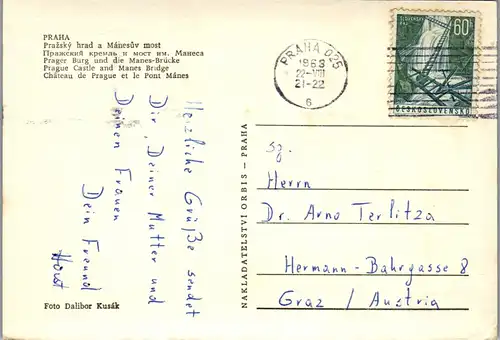 PRAHA
Pražský hrad a Mánesův most
Пражский кремль и мост им. Манеса
Prager Burg und die Manes-Brücke
Prague Castle and Manes Bridge
Château de Prague et le Pont Mánes
Herzliche Grüße sendet
Dir, Deiner Mutter und
Deinen Frauen
Dein Freund
Horst
Foto Dalibor Kusák
NAKLADATELSTVÍ ORBIS – PRAHA
PRAHA 025
1963
22-VIII
21-22
6
60
ČESKOSLOVENSKO
Sg.
Herrn
Dr. Arno Terlitza
Hermann-Bahrgasse 8
Graz / Austria